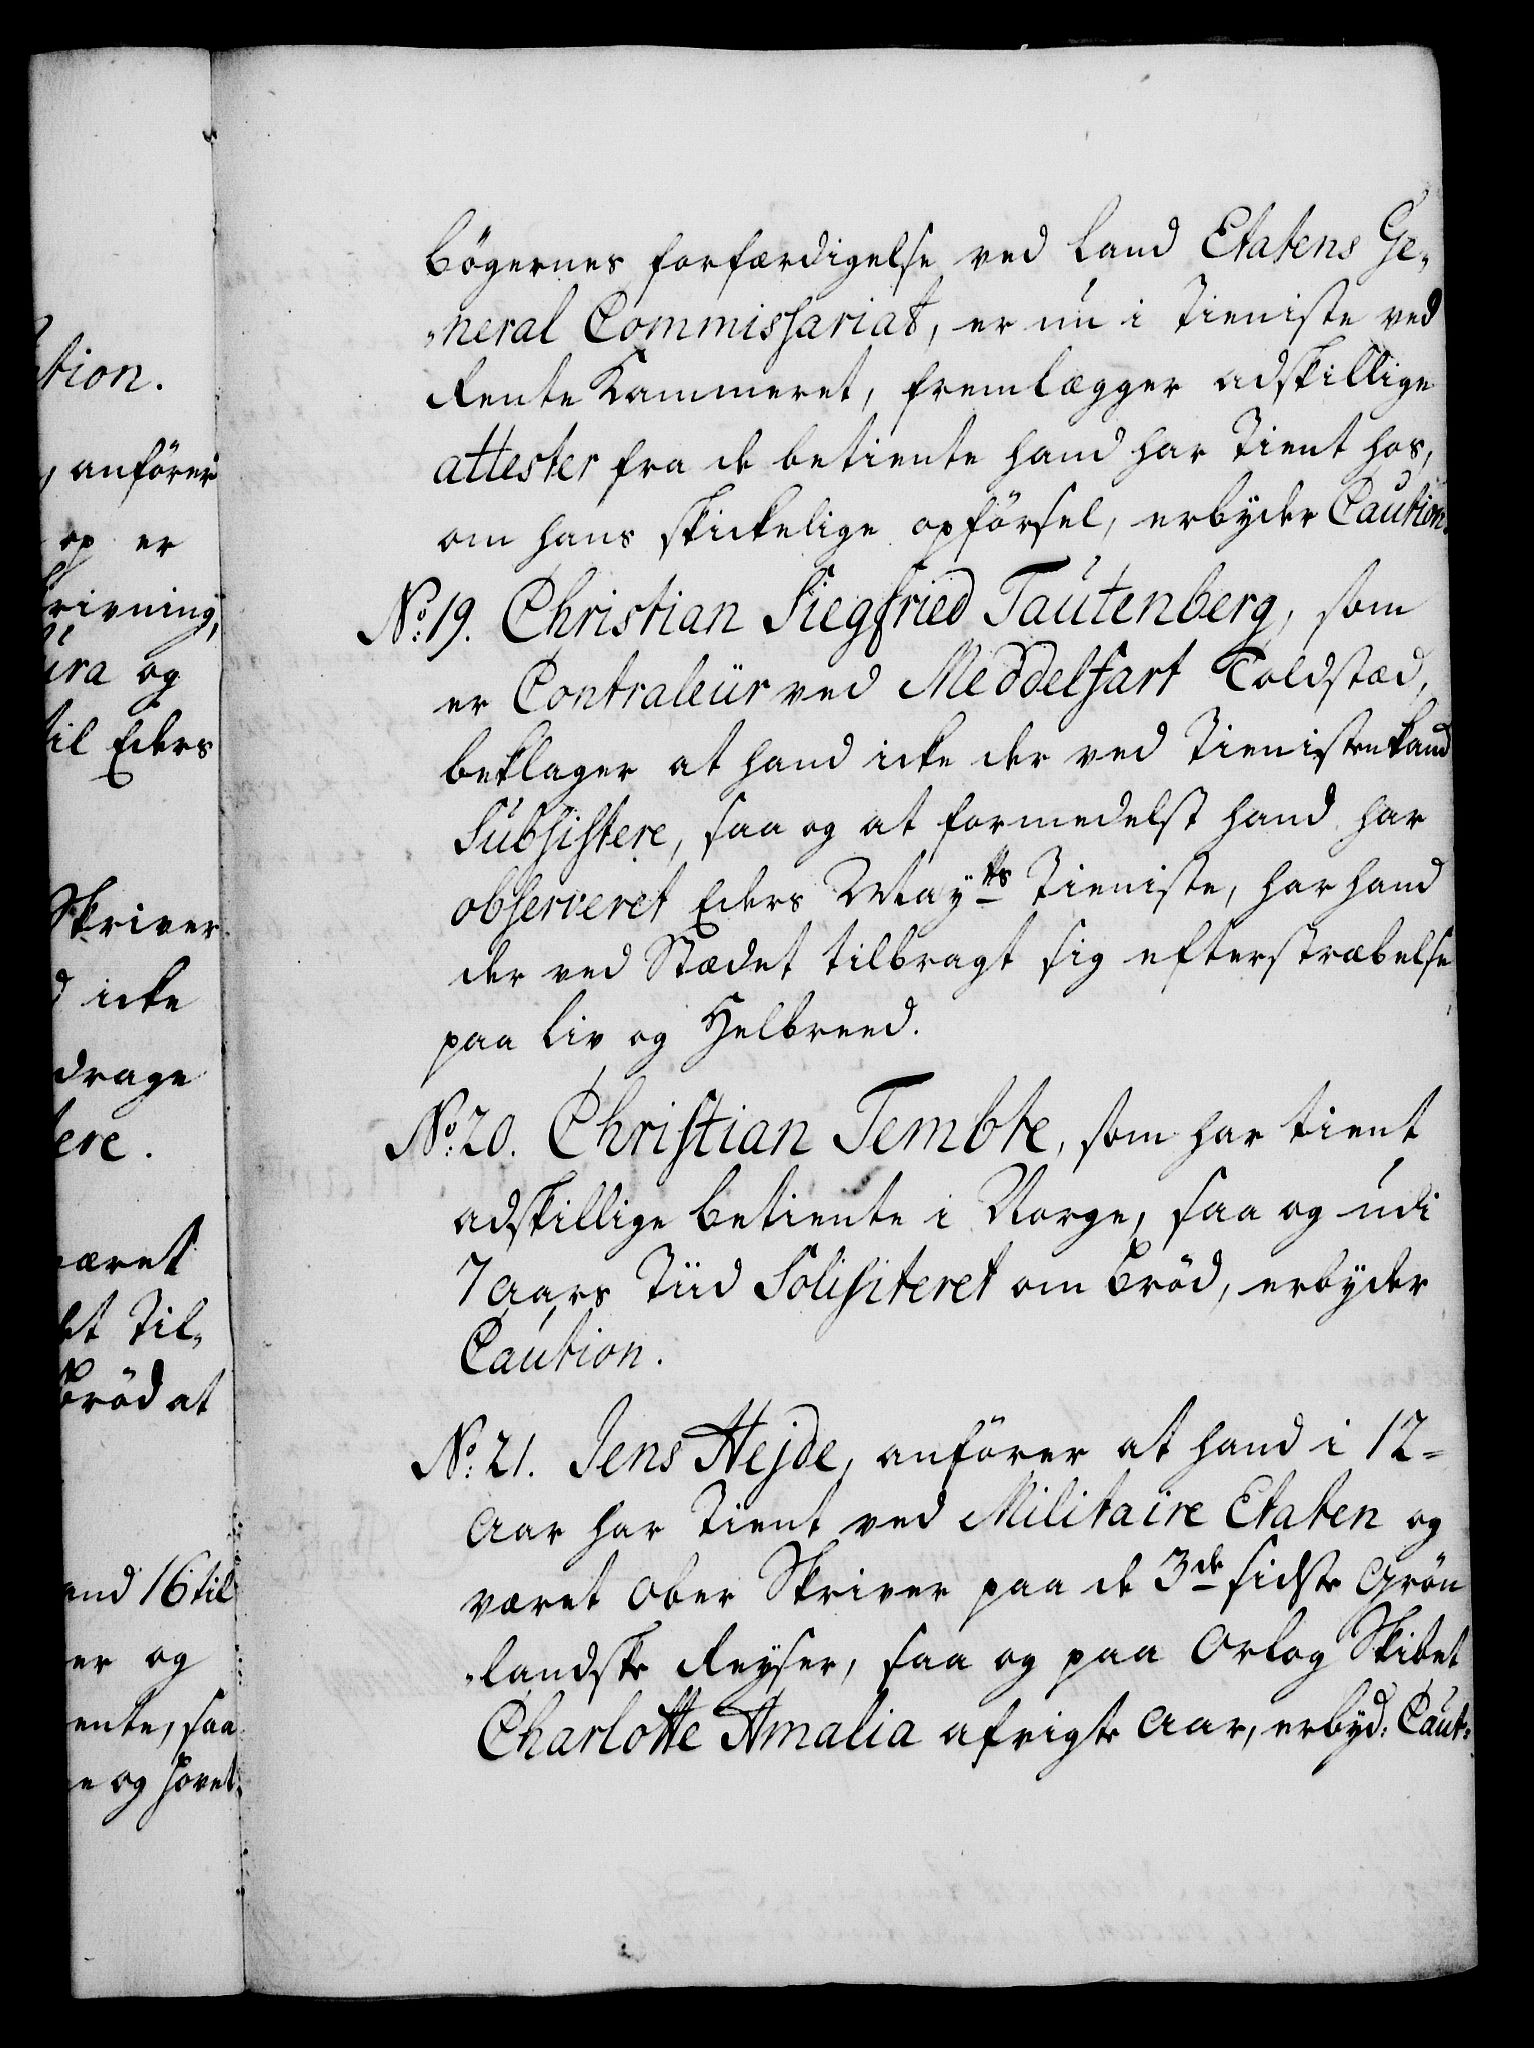 tion.
, anfører
op er
rivning,
ura og
til Eders
Skriver
d icke
drage
tere.
været
et Til,,
brød at
and 16 til
er og
ente, saa
e og Hovet
bøgernes forfærdigelse ved Land Etatens Ge,,
,,neral Commissariat, er nu i Tieniste ved
Rente Kammeret, fremlægger adskillige
attester fra de betiente hand har Tient hos,
om hans skickelige opførsel, erbyder Caution.
No: 19. Christian Siegfried Tautenberg, som
er Contraleur ved Meddelfart Toldstæd,
beklager at hand icke der ved Tienisten kand
Subsistere, saa og at formedelst hand har
observeret Eders Mayts Tieniste, har hand
der ved Stædet tilbragt sig efterstræbelse
paa Liv og Helbreed.
No: 20. Christian Tembte, som har tient
adskillige betiente i Norge, saa og udi
7 Aars Tiid Solisiteret om brød, erbyder
Caution.
No: 21. Jens Hejde, anfører at hand i 12=
Aar har Tient ved Militaire Etaten og
været Ober Skriver paa de 3de sidste Grøn
,,landske Reyser, saa og paa Orlog Skibet
Charlotte Amalia afvigte Aar, erbyd: Caut: